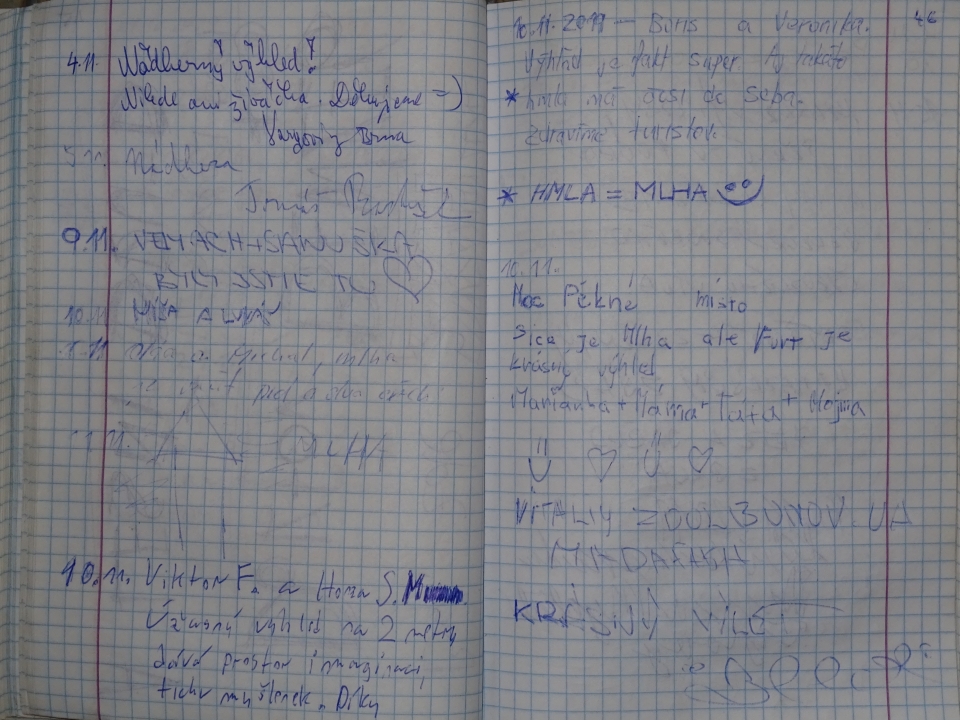 4.11. Nádherný výhled!
Nikde ani živáčka. Děkujeme =)
Brna
5.11. Nádhera
Tomáš
9.11.
BYLY JSME TU ♡
10.11 MÍŠA A LUKÁŠ
a Michal, mlha
11.11. MLHA
10.11. Viktor F. a Honza S.
Úžasný výhled na 2 metry
dává prostor imaginaci,
tichu myšlenek. Díky
46
10.11.2019 — Boris a Veronika.
Výhľad je fakt super aj takáto
* hmla má čosi do seba.
Zdravíme turistov
* HMLA = MLHA
10.11.
Moc Pěkné místo
Sice je Mlha ale Furt je
krásný výhled
Marianka + Máma + Táta + Hojna
VITALIY ZDOLBUNOV UA
KRÁSNÝ VÝLET